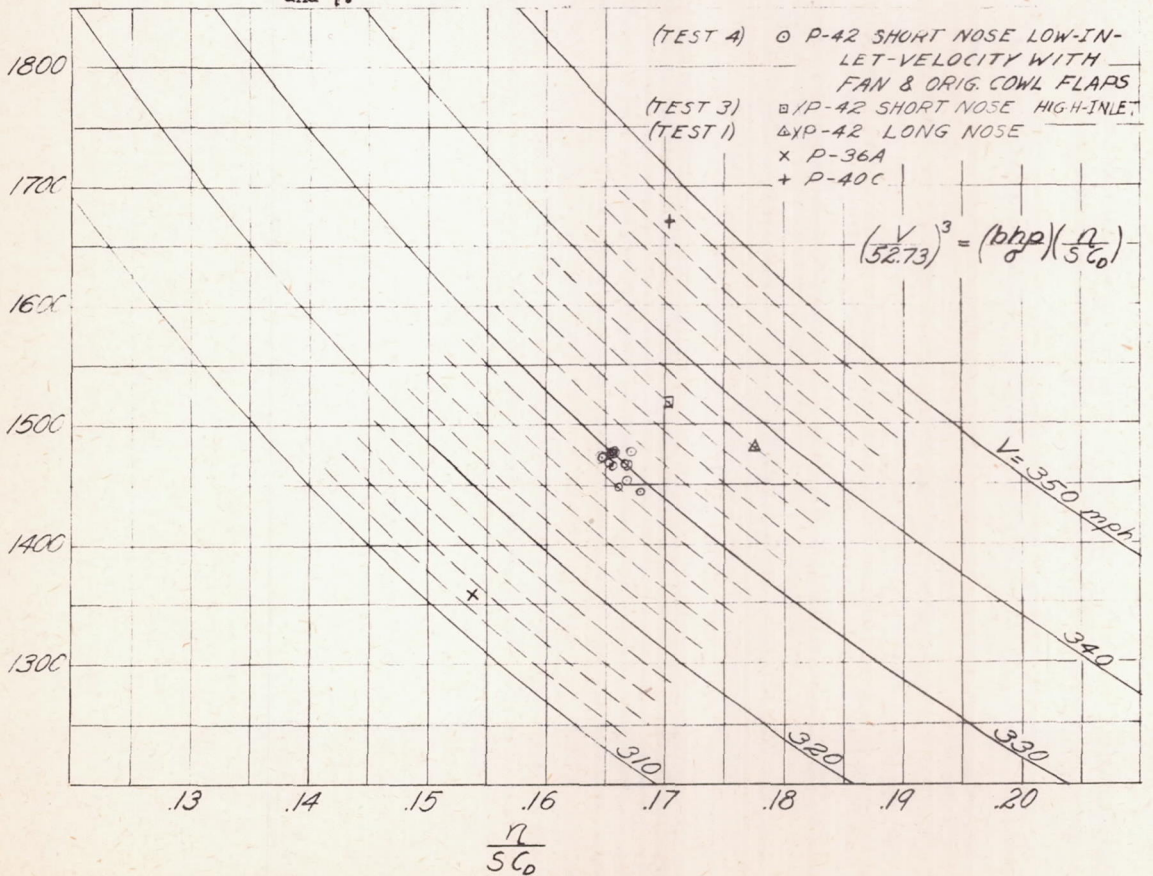 and 7.
(TEST 4) ⊙ P-42 SHORT NOSE LOW-IN-
LET-VELOCITY WITH
FAN & ORIG. COWL FLAPS
(TEST 3) ⊡ YP-42 SHORT NOSE HIGH-INLET
(TEST 1) YP-42 LONG NOSE
× P-36A
+ P-40C
(V/52.73)³ = (bhp/σ)(η/SC_D)
1800
1700
1600
1500
1400
1300
V = 350 mph
340
330
320
310
.13 .14 .15 .16 .17 .18 .19 .20
η/SC_D